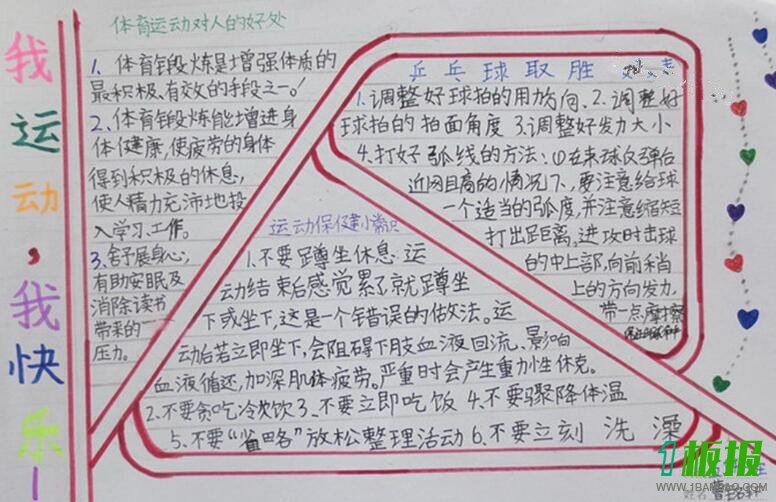 我运动,我快乐!
体育运动对人的好处
1、体育锻炼是增强体质的
最积极、有效的手段之一!
2、体育锻炼能增进身
体健康,使疲劳的身体
得到积极的休息,
使人精力充沛地投
入学习、工作。
3、舒展身心,
有助安眠及
消除读书
带来的
压力。
乒乓球取胜
1.调整好球拍的用力方向、2.调整好
球拍的拍面角度 3.调整好发力大小
4.打好弧线的方法:①在来球仅弹台
近网且高的情况下,要注意给球
一个适当的弧度,并注意缩短
打出距离,进攻时击球
的中上部,向前稍
上的方向发力,
带一点摩擦
运动保健小常识
1.不要蹲坐休息 运
动结束后感觉累了就蹲坐
下或坐下,这是一个错误的做法。运
动后若立即坐下,会阻碍下肢血液回流、影响
血液循还,加深肌体疲劳。严重时会产生重力性休克。
2.不要贪吃冷饮 3、不要立即吃饭 4.不要骤降体温
5.不要“省略”放松整理活动 6.不要立刻 洗 澡
1板报
WWW.1BANBAO.COM